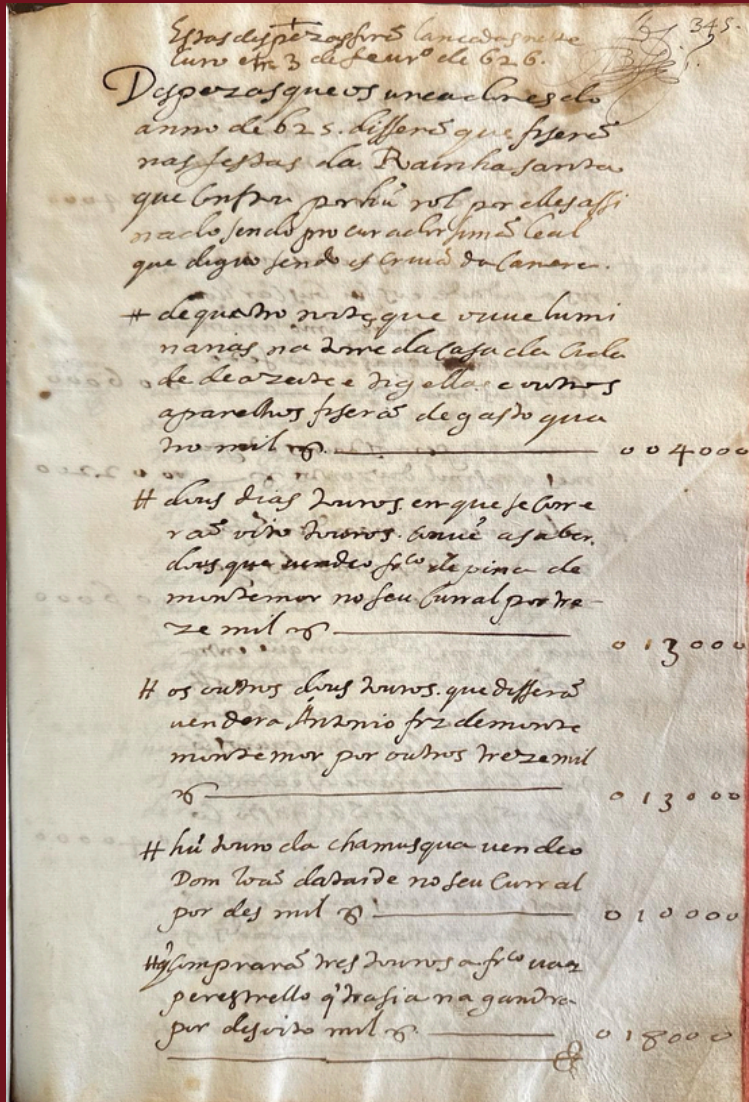 345.
Estas despezas forão lançadas neste
liuro em 3 de feur.º de 626.
Despezas que os vreadores do
anno de 625. disserão que fiserão
nas festas da Rainha santa
que consta por hũ rol por elles assi
nado sendo procurador simão leal
que diguo sendo escriuão da Camera.
# de quatro noites que ouue lumi
narias na torre da casa da cida
de de azeite e tigellas e outros
aparelhos fiserão de gasto qua
tro mil rs. 004000
# dous dias touros. en que se corre
rão oito touros. conuẽ a saber.
dous que vendeo fr.co de pina de
montemor no seu Curral por tre-
ze mil rs 013000
# os outros dous touros. que disserão
vendera Antonio frz de monte
montemor por outros treze mil
rs 013000
# hũ touro da chamusqua vendeo
Dom Joaõ dataide no seu Curral
por des mil rs 010000
# q̃ Comprarão tres touros a fr.co vaaz
perestrello q̃ trasia na gandra
por desoito mil rs. 018000